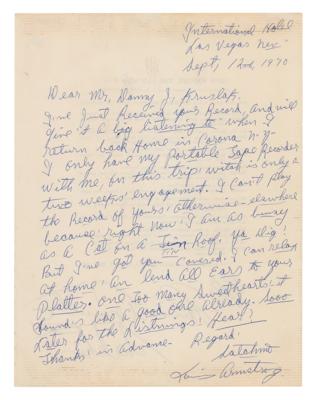 International Hotel
Las Vegas Nev.
Sept, 12nd, 1970
Dear Mr, Danny J,
I've Just Received your Record, And will
give it a big listening to when I
return back Home in Corona N.Y.
I only have my Portable Tape Recorder
With me, on this trip, witch is only a
two weeps' engagement. I can't play
the Record of yours' otherwise - elsewhere
because right Now' I am as busy
as a Cat on a Tin Roof. ya dig!
But I've got you Covered. I can relax
at home' An lend All Ears to your
Platter. One Too Many Sweethearts' it
sounds like a good one Already. Sooo
Later for the Listnings! Hear?
Thanks! in Advance- Regards'
Satchmo
Louis Armstrong